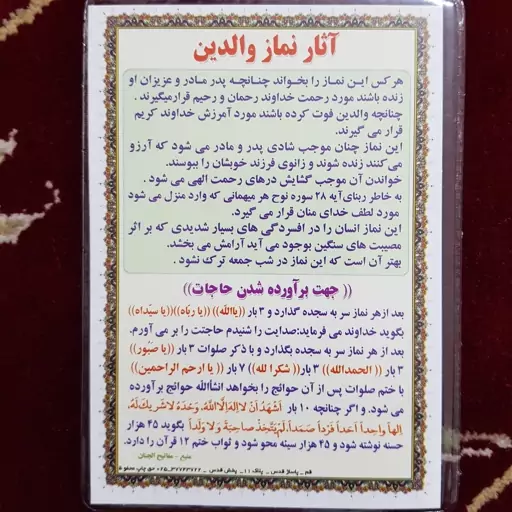 آثار نماز والدین
هرکس این نماز را بخواند چنانچه پدر مادر و عزیزان او
زنده باشند مورد رحمت خداوند رحمان و رحیم قرار میگیرند .
چنانچه والدین فوت کرده باشند مورد آمرزش خداوند کریم
قرار می گیرند.
این نماز چنان موجب شادی پدر و مادر می شود که آرزو
می کنند زنده شوند و زانوی فرزند خویشان را ببوسند.
خواندن آن موجب گشایش درهای رحمت الهی می شود .
به خاطر ربنای آیه ۲۸ سوره نوح هر میهمانی که وارد منزل می شود
مورد لطف خدای منان قرار می گیرد.
این نماز انسان را در افسردگی های بسیار شدیدی که بر اثر
مصیبت های سنگین بوجود می آید آرامش می بخشد.
بهتر آن است که این نماز در شب جمعه ترک نشود .
(( جهت برآورده شدن حاجات))
بعد از هر نماز سر به سجده گذارد و ۳ بار ((یاالله)) ((یا ربّاه))((یا سیّداه))
بگوید خداوند می فرماید:صدایت را شنیدم حاجتت را بر می آورم.
بعد از هر نماز سر به سجده بگذارد و با ذکر صلوات ۳ بار ((یا صبور))
۳ بار (( الحمدالله)) ۳ بار(( شکرا لله)) ۷ بار (( یا ارحم الراحمین))
با ختم صلوات پس از آن حوائج را بخواهد انشاالله حوائج برآورده
می شود. و اگر چنانچه ۱۰ بار اَشهَدُ اَنْ لا اِلهَ اِلَّا اللهُ، وَحدَهُ لا شَریکَ لَهُ،
اِلهاً واحِداً اَحَداً فَرْداً صَمَداً، لَم یَتَّخِذ صاحِبَةً وَ لا وَلَداً بگوید ۴۵ هزار
حسنه نوشته شود و ۴۵ هزار سیئه محو شود و ثواب ختم ۱۲ قرآن را دارد.
منبع - مفاتیح الجنان
قم _ پاساژ قدس _ پلاک ۱۱ _ پخش قدس _